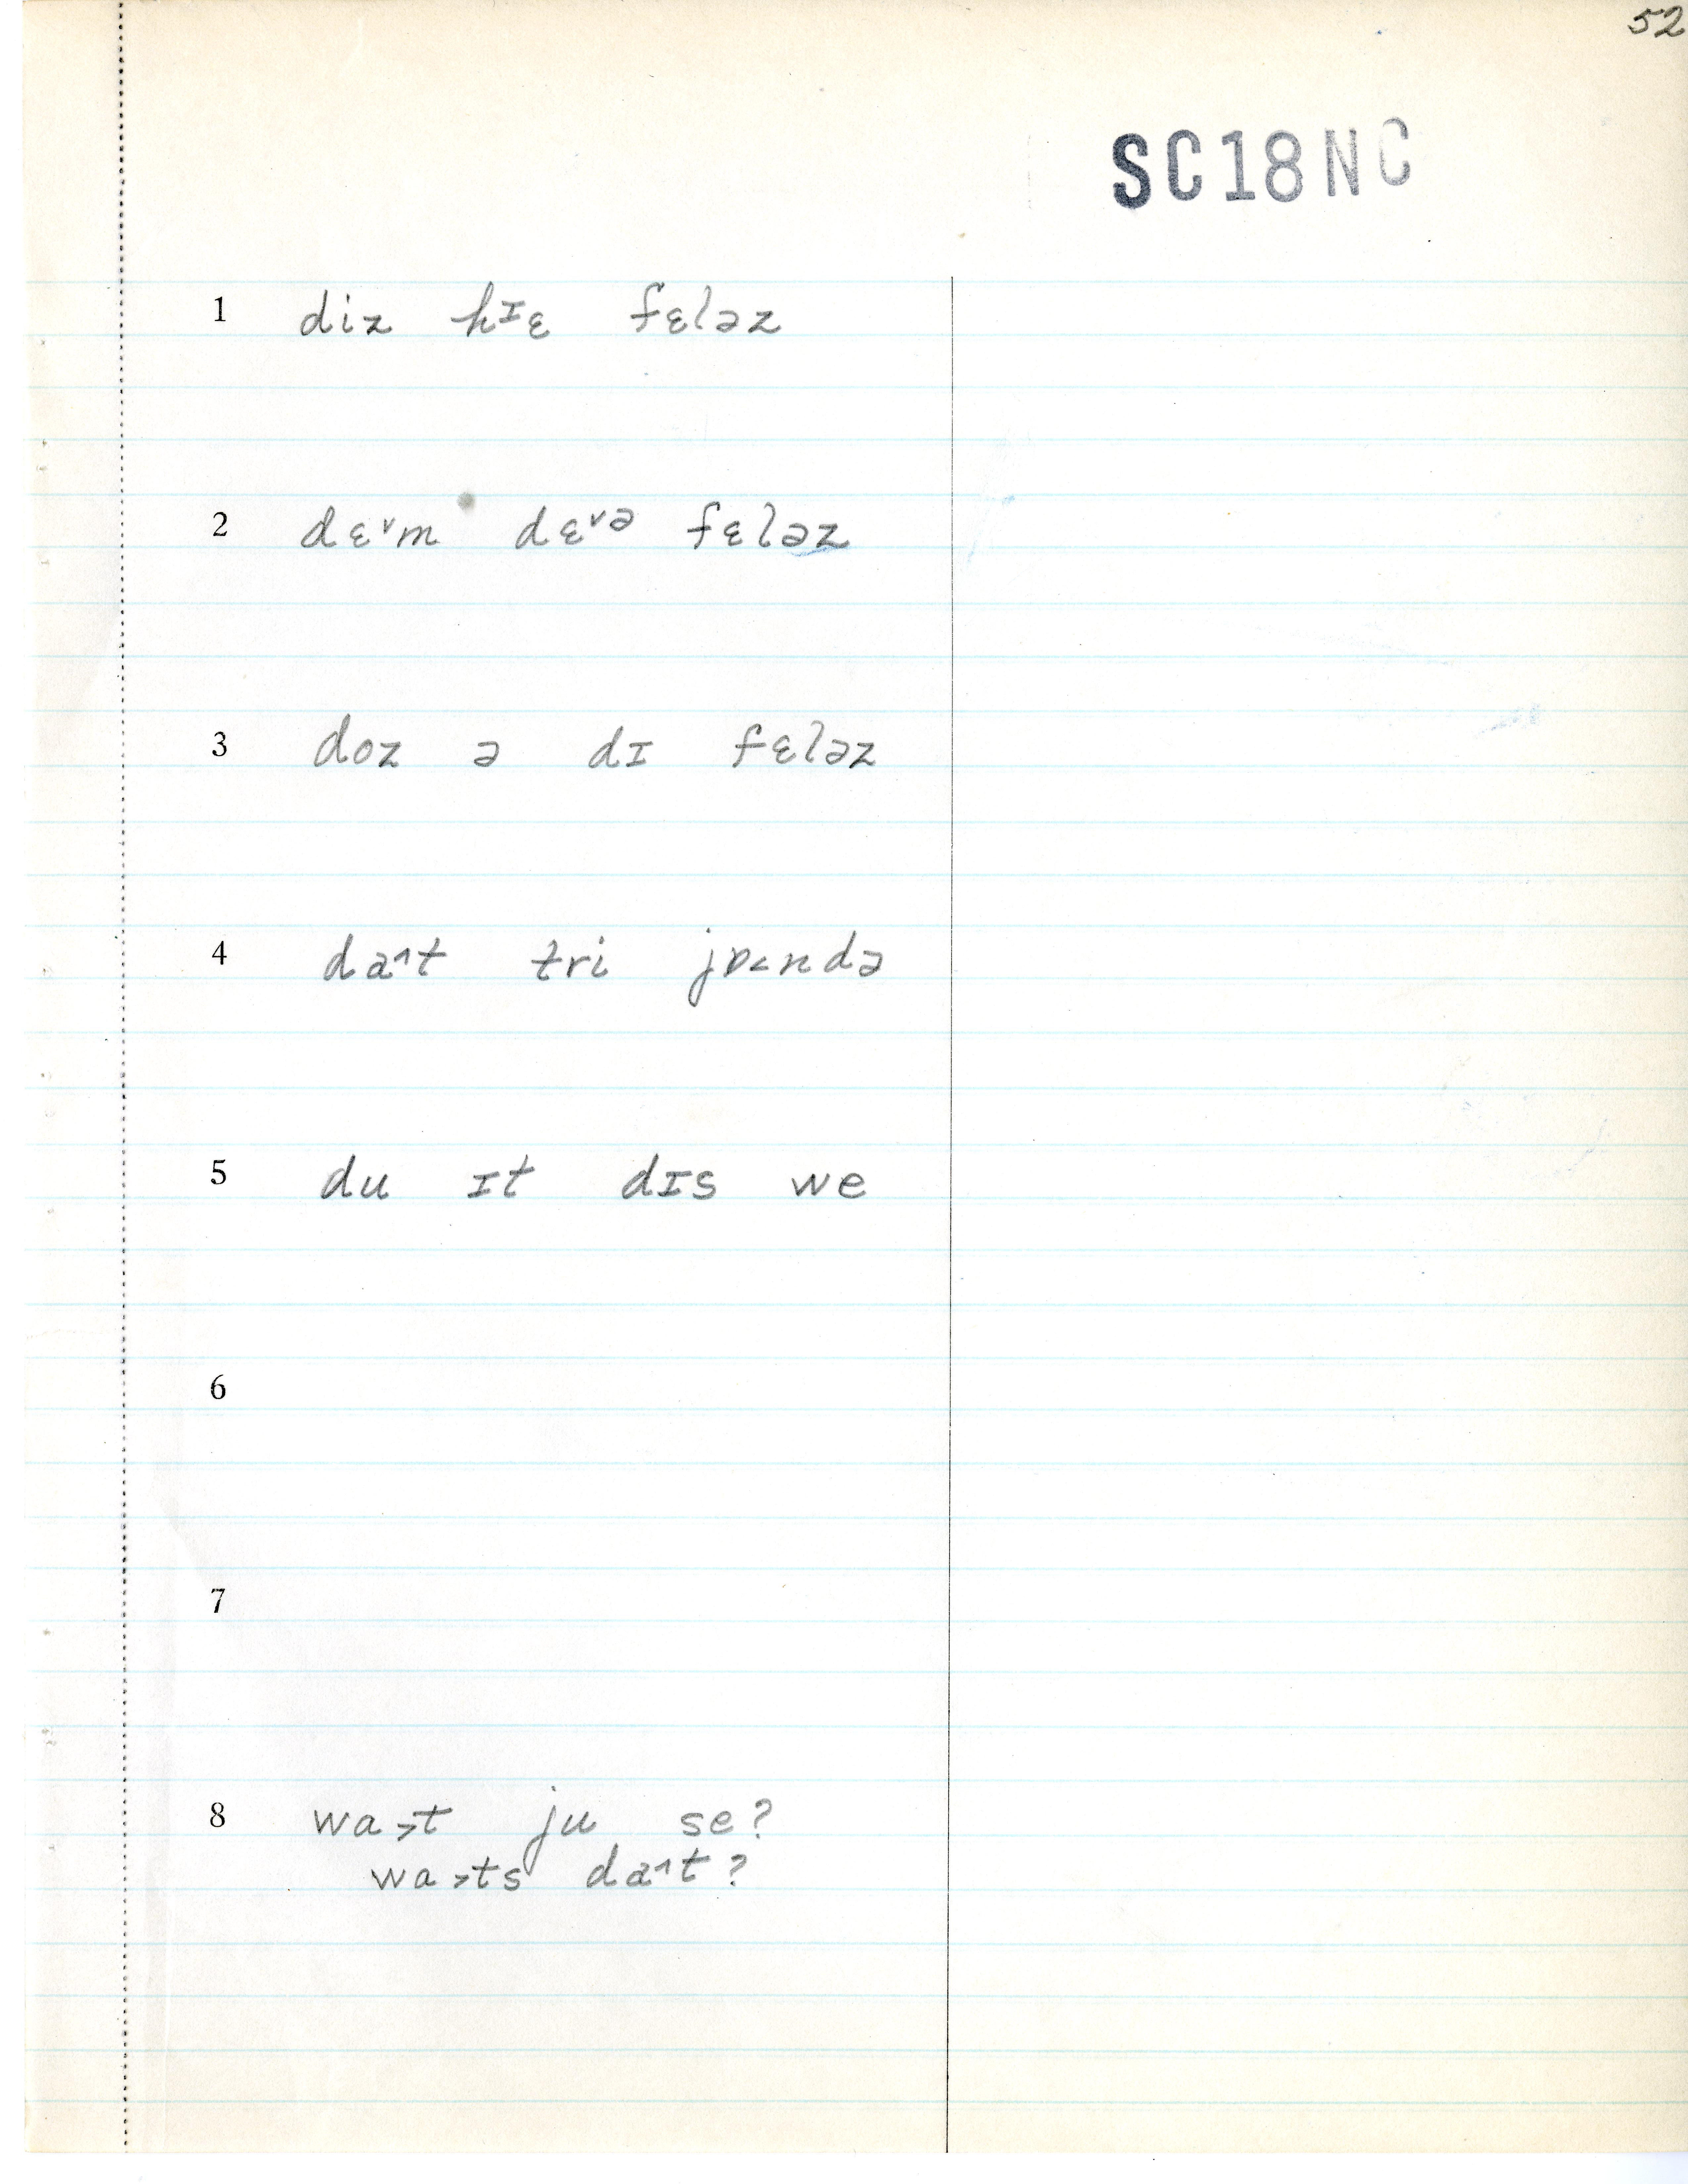 52
SC18NC
1 diz hɪɛ fɛləz
2 dɛ˅m dɛ˅ə fɛləz
3 doz ə dɪ fɛləz
4 da˄t tri jɒ˂ndə
5 du ɪt dɪs we
6
7
8 wa˃t ju se?
wa˃ts da˄t?